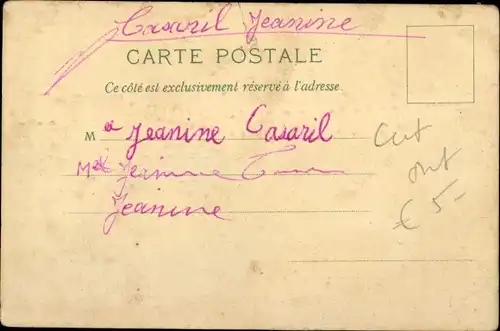 Casaril Jeanine
CARTE POSTALE
Ce côté est exclusivement réservé à l'adresse.
M Jeanine Casaril
Jeanine
Jeanine
Cut
out
€ 5-